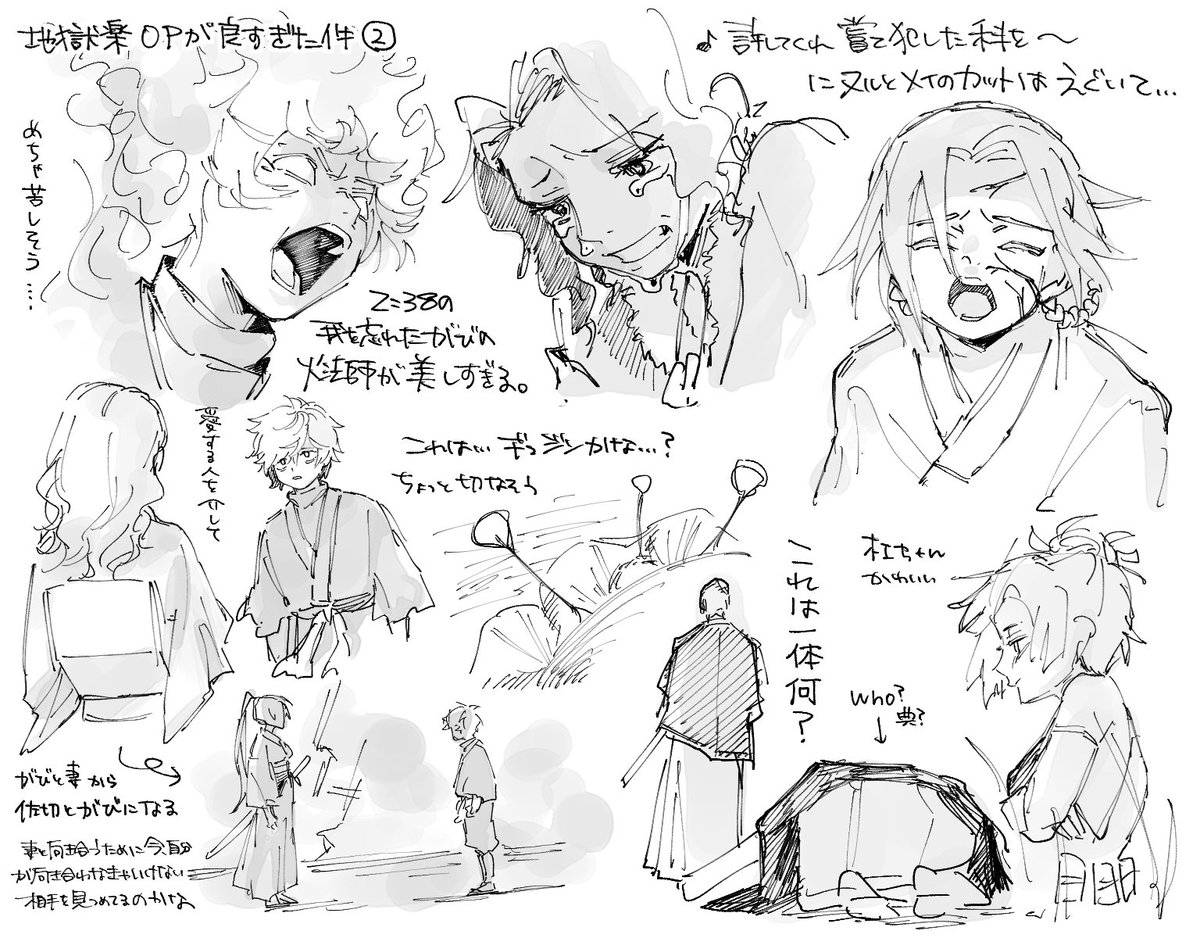 地獄楽 OPが良すぎた件②
めちゃ苦しそう....
♪許してくれ 嘗て犯した科を〜
にヌルとメイのカットは えぐいて...
2=38の
我を忘れたがびの
火法師が美しすぎる。
愛する人を介して
これは... ギっジンかな...?
ちょっと切なそう
これは一体何?
杠ちゃん
かわいい
who?
典?
がびと妻から
佐切とがびになる
妻と向き合うために今、自分
が向き合わなきゃいけない
相手を見つめてるのかな